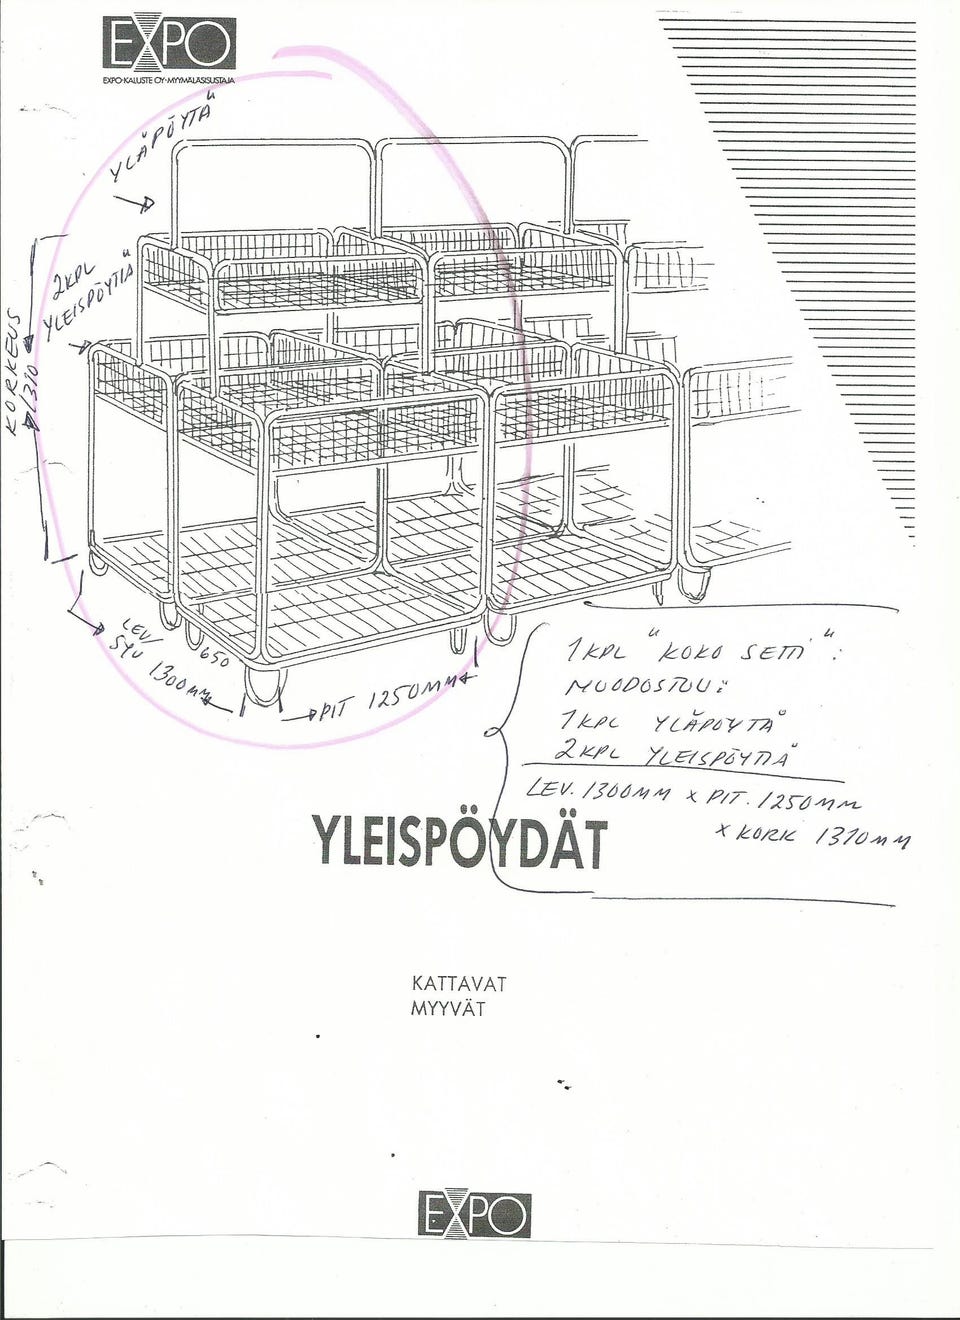 EXPO
EXPO-KALUSTE OY·MYYMÄLÄSISUSTAJA
YLÄPÖYTÄ"
2KPL
YLEISPÖYTIÄ"
KORKEUS
1310
LEV/
SYV 1300mm
650
PIT 1250MM
1KPL "KOKO SETTI":
MUODOSTUU:
1KPL YLÄPÖYTÄ"
2KPL YLEISPÖYTIÄ"
LEV. 1300MM x PIT. 1250MM
x KORK 1310MM
YLEISPÖYDÄT
KATTAVAT
MYYVÄT
EXPO